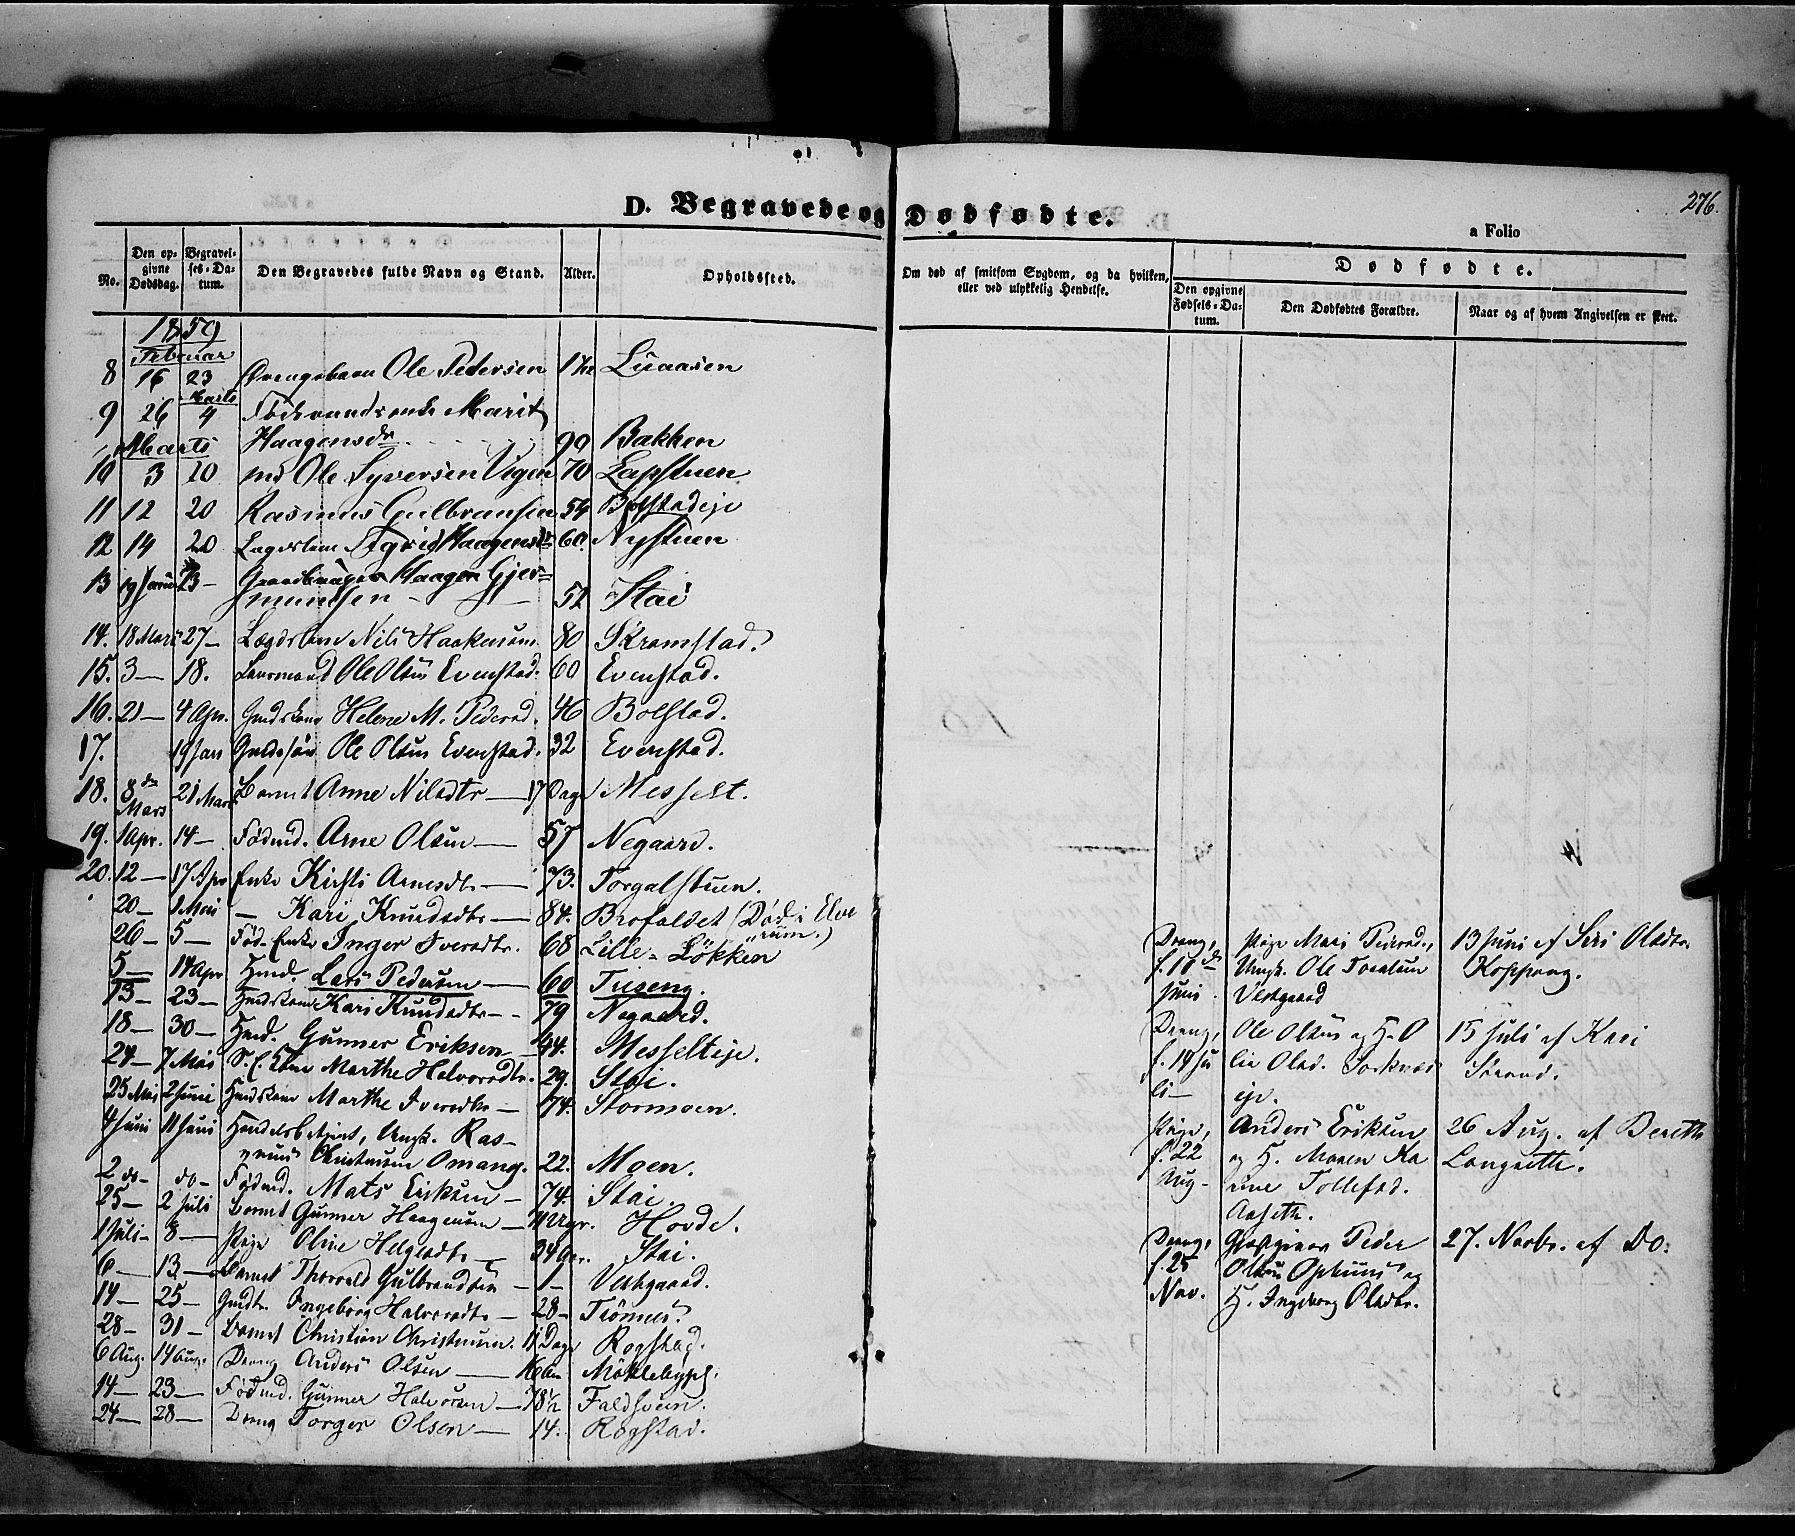 276.
D. Begravede og Dødfødte.
a Folio
No.
Den opgivne Dødsdag.
Begravelses-Datum.
Den Begravedes fulde Navn og Stand.
Alder.
Opholdssted.
Om død af smitsom Sygdom, og da hvilken, eller ved ulykkelig Hendelse.
Dødfødte.
Den opgivne Fødsels-Datum.
Den Dødfødtes Forældre.
Naar og af hvem Angivelsen er skeet.
1859
Februar
8 16 23 Drengebarn Ole Pedersen Luaasen
Marts
9 26 4 Marit
Marts Haagensdr 99 Bakken
10 3 10 Ole Syversen 70 Lapstuen
11 12 20 Rasmus Gulbransen 54 Bolstadeje
12 14 20 Haagensdr 60. Nystuen
13 19 23 — Haagen Gjer=
mundsen — 51 Stai
14. 18 Mars 27 — Nils Haakensøn 80 Skramstad.
15. 3 — 18. Ole Olsen Evenstad. 60 Evenstad.
16. 21 — 4 Apr. Helene M. Pedersd. 46 Bolstad.
17. 19 Ole Olsen Evenstad. 32 Evenstad.
18. 8de Mars 21 Mars Barnet Anne Nilsdtr — 17 Dage Messelt.
19. 1 Apr. 14 — Fødmd. Arne Olsen — 57 Negaard.
20. 12 — 17 Apr Enke Kirsti Arnesdtr — 73. Torgalstuen.
20 — 1 Mai — Kari Knudsdtr — 84. Brofaldet (Død i Elve
rum.)
26 — 5 — Fød-Enke Inger Iversdtr. 68 Lille-Løkken
5 — 14 Apr Hmd. Lars Pedersen — 60 Tuseng.
13 — 23 — Kari Knudsdtr — 79 Negaard.
18 — 30 — Hmd. Gunner Eriksen — 44. Messelteje.
24 — 7 Mai Marthe Halvorsdtr. 29. Stai.
25 Mai 2 Juni Marthe Iversdtr — 74. Stormoen.
4 Juni 11 Juni Handelsbetjent, Ungk. Ras-
mus Christensen Omang. 22. Moen.
2 do — do — Fødmd. Mats Eriksen — 74. Stai.
25 — 2 Juli Barnet Gunner Haagensøn — Hovde.
1 Juli — 8 — Pige Oline Helgesdtr — Stai.
6 — 13 — Barnet Thorvald Gulbrandsen — 1 — Vestgaard.
14 — 25 — Ingeborg Halvorsdtr — 28 — Tiønnes.
28 — 31 — Barnet Christian Christensen. 11 Dage Rogstad.
6 Aug. 14 Aug. Dreng Anders Olsen — 16 Møklebypl.
14 — 23 — Fødmd. Gunner Halvorsen — 78½ Faldsveen.
24 — 28 — Dreng Torger Olsen — 14. Rogstad.
Dreng, f. 10de Juni. Pige Mari Pedersd., Ungk. Ole Vestgaard 13 Juni af Siri Olsdtr. Koppang.
Dreng, f. 14 Juli — Ole Olsen og H. O
lia Olsd. eje. 15 Juli af Kari Strand.
Pige, f. 22 Aug — Anders Eriksen og H. Maren Ka
rine Tollefsd. Aaseth. 26 Aug. af Bereth Langseth.
Dreng, f. 25 Nov. Peder Olsen og H. Ingeborg Olsdtr. 27. Novbr. af Do.